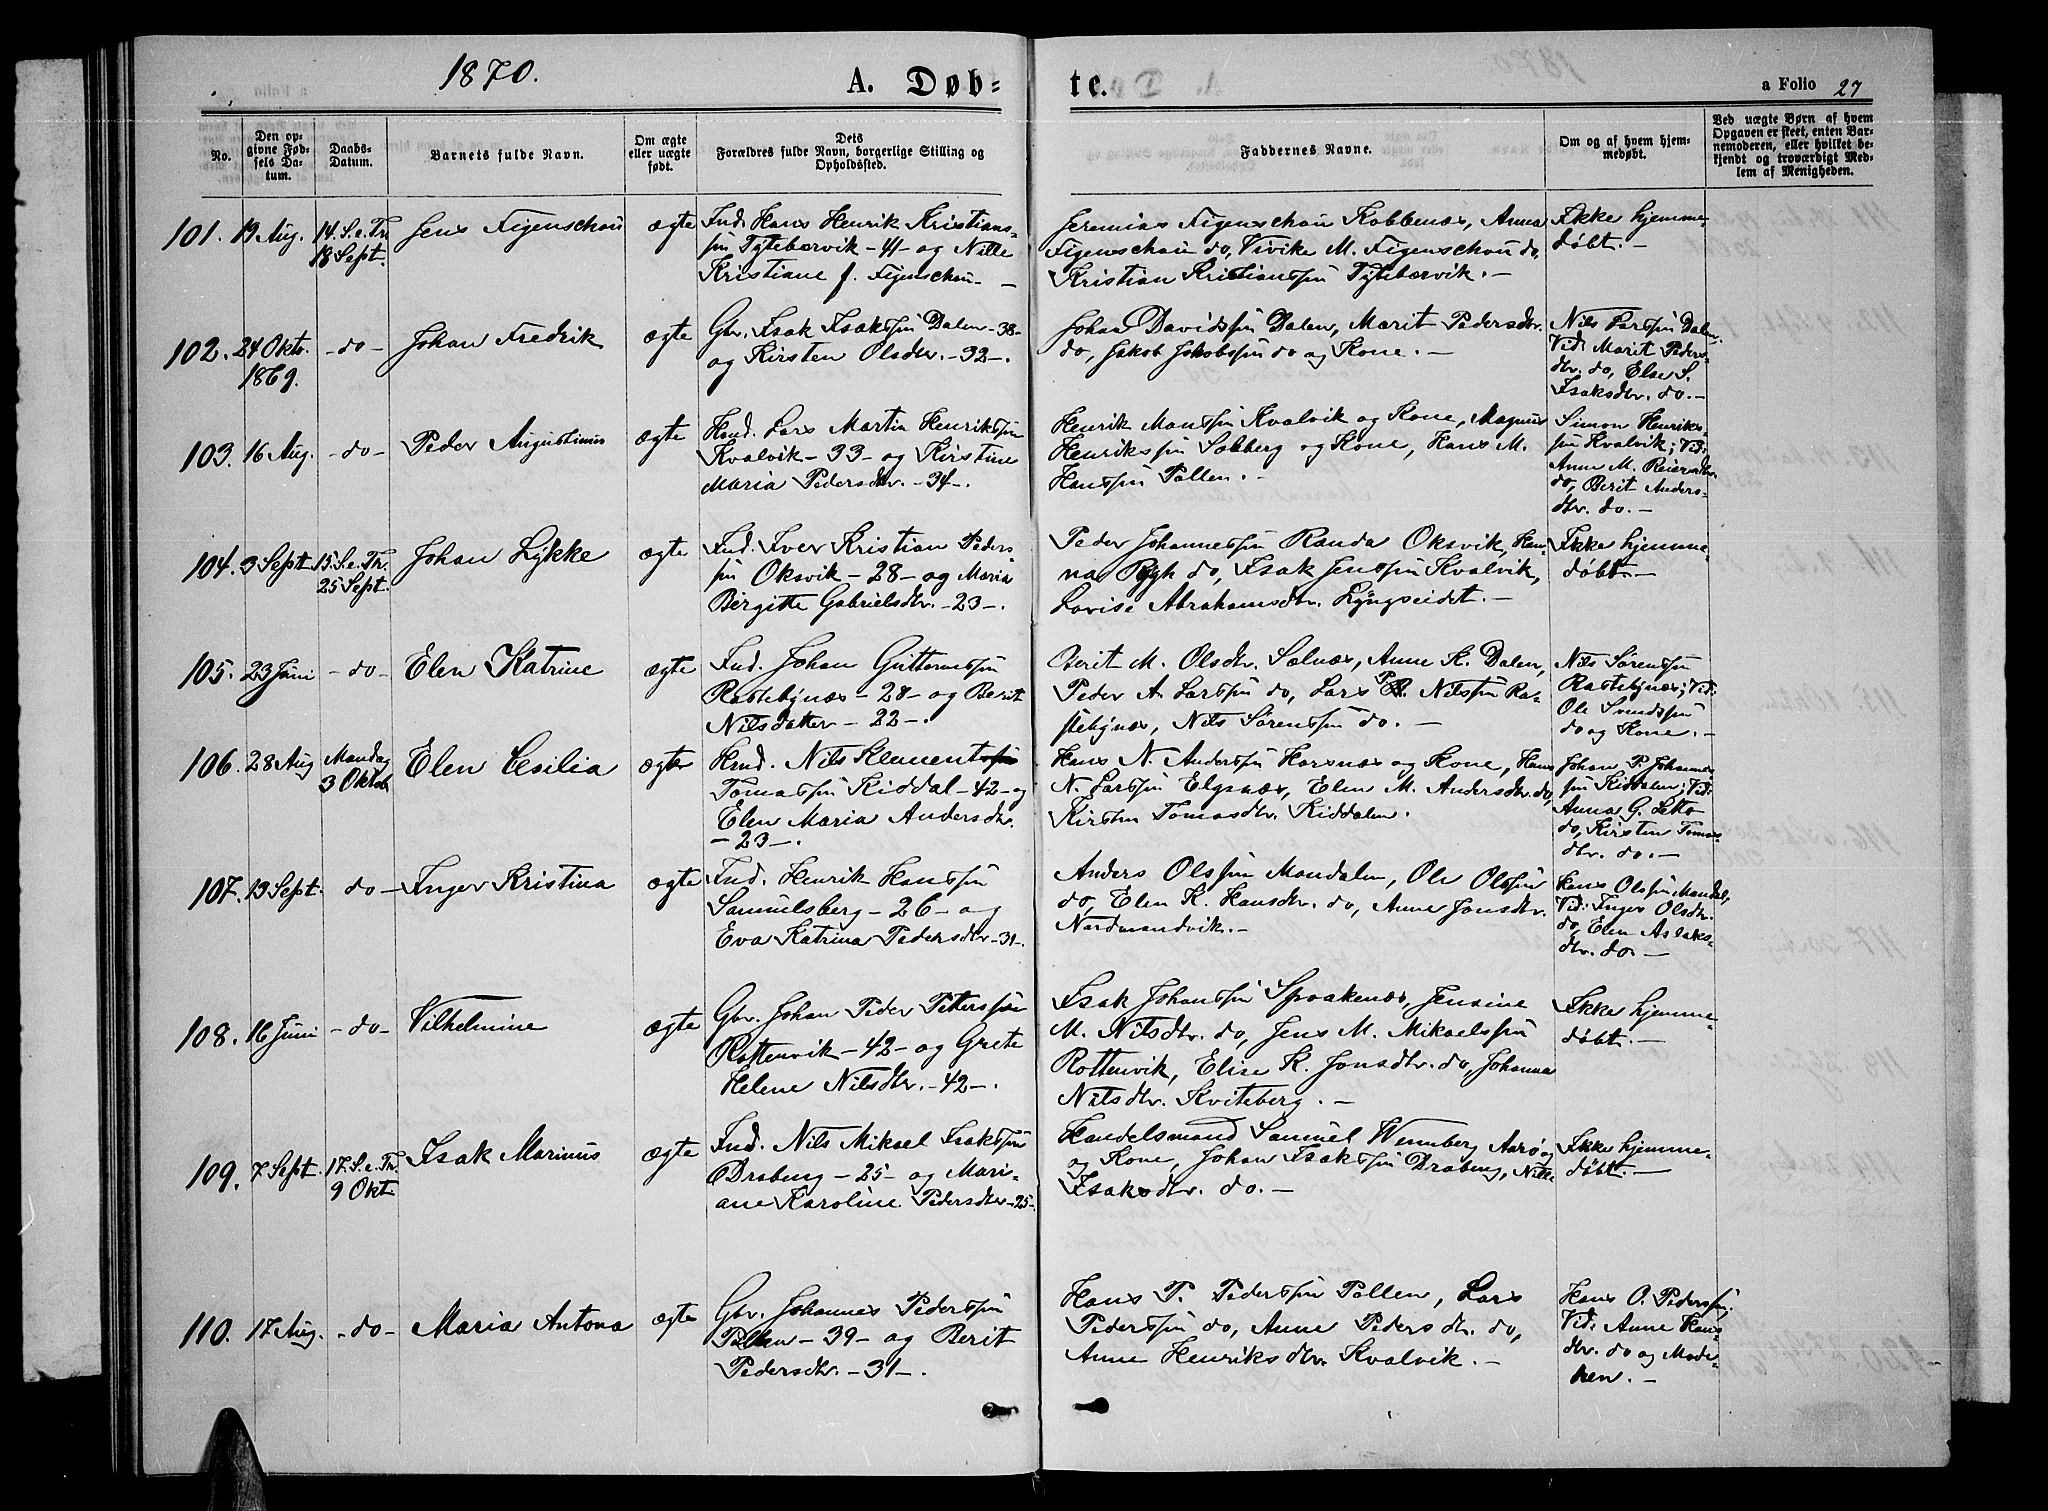 1870.
A. Døb=
te.
a Folio 27
No.
Den op-
givne Fød-
sels Da-
tum.
Daabs-
Datum.
Barnets fulde Navn.
Om ægte
eller uægte
født.
Dets
Forældres fulde Navn, borgerlige Stilling og
Opholdssted.
Faddernes Navne.
Om og af hvem hjem-
medøbt.
Ved uægte Børn af hvem
Opgaven er skeet, enten Bar-
nemoderen, eller hvilket be-
kjendt og troværdigt Med-
lem af Menigheden.
101. 19 Aug. 14. S. e. Tr.
18 Sept.
Jens Figenschou
ægte
Ind. Hans Henrik Kristians-
søn Tyttebærvik - 41 - og Nille
Kristiane f. Figenschou -
Jeremias Figenschou Kobbenæs, Anna
Figenschou do, Vivike M. Figenschou do,
Kristian Kristianssøn Tyttebærvik. -
Ikke hjemme-
døbt. -
102. 24 Okto.
1869.
- do -
Johan Fredrik
ægte
Gbr. Isak Isakssøn Dalen - 38 -
og Kirsten Olsdtr. - 32 -.
Johan Davidssøn Dalen, Marit Pedersdtr.
do, Jakob Jakobssøn do og Kone. -
Nils Larssøn Dalen.
Vid: Marit Peders-
dtr. do, Else S.
Isaksdtr. do. -
103. 16 Aug. - do -
Peder Augustinus
ægte
Hmd. Lars Martin Henrikssøn
Kvalvik - 33 - og Kirstine
Maria Pedersdtr. - 34 -.
Henrik Manssøn Kvalvik og Kone, Magnus
Henrikssøn Solberg og Kone, Hans M.
Hanssøn Pollen. -
Simon Henriks-
søn Kvalvik; Vid:
Anne M. Reiersdtr.
do, Berit Anders-
dtr. do. -
104. 3 Sept. 15. S. e. Tr.
25 Sept.
Johan Lykke
ægte
Ind. Iver Kristian Peders-
søn Oksvik - 28 - og Maria
Birgitte Gabrielsdtr. - 23 -.
Peder Johannessøn Randa Oksvik, Han-
na Rygh do, Isak Jenssøn Kvalvik,
Lovise Abrahamsdtr. Lyngseidet. -
Ikke hjemme-
døbt. -
105. 23 Juni - do -
Elen Katrine
ægte
Ind. Johan Guttormssøn
Rastebynæs - 28 - og Berit
Nilsdatter - 22 -.
Berit M. Olsdtr. Solnæs, Anne K. Dalen,
Peder A. Larssøn do, Lars P. Nilssøn Ra-
stebynæs, Nils Sørenssøn do. -
Nils Sørenssøn
Rastebynæs; Vid:
Ole Svendssøn
do og Kone. -
106. 28 Aug Mandag
3 Oktob
Elen Cesilia
ægte
Hmd. Nils Klementssøn
Tomassøn Kiddal - 42 - og
Elen Maria Andersdtr.
- 23 -.
Hans N. Anderssøn Horsnæs og Kone, Hans
N. Larssøn Elgsnæs, Elen M. Andersdtr. do,
Kirsten Tomasdtr. Kiddalen.
Johan P. Johannes-
søn Kiddalen; Vid:
Anna G. Lotto
do, Kirsten Tomas-
dtr. do. -
107. 13 Sept. do -
Inger Kristina
ægte
Ind. Henrik Hanssøn
Samuelsberg - 26 - og
Eva Katrina Pedersdtr. - 31 -.
Anders Olssøn Mandalen, Ole Olssøn
do, Elen K. Hansdtr. do, Anne Jonsdtr.
Nordmandvik. -
Hans Olssøn Mandal,
Vid: Inger Olsdtr.
do, Elen Aslaks-
dtr. do. -
108. 16 Juni - do -
Vilhelmine
ægte
Gbr. Johan Peder Peterssøn
Rottenvik - 42 - og Grete
Helene Nilsdtr. - 42 -.
Isak Johanssøn Spaakenæs, Jensine
M. Nilsdtr. do, Jens M. Mikaelssøn
Rottenvik, Elise K. Jonsdtr. do, Johanna
Nilsdtr. Kviteberg. -
Ikke hjemme-
døbt. -
109. 7 Sept. 17. S. e. Tr.
9 Okt.
Isak Marinus
ægte
Ind. Nils Mikael Isakssøn
Drabeng - 25 - og Mari-
ane Karoline Pedersdtr - 25 -
Handelsmand Samuel Wennberg Aarø
og Kone, Johan Isakssøn Drabeng, Nille
Isaksdtr. do. -
Ikke hjemme-
døbt. -
110. 17 Aug. - do -
Maria Antona
ægte
Gbr. Johannes Pederssøn
Pollen - 39 - og Berit
Pedersdtr. - 31 -.
Hans P. Pederssøn Pollen, Lars
Pederssøn do, Anne Pedersdtr. do,
Anne Henriksdtr. Kvalvik. -
Hans O. Pederssøn;
Vid: Anne Hans-
dtr. do og Mode-
ren. -